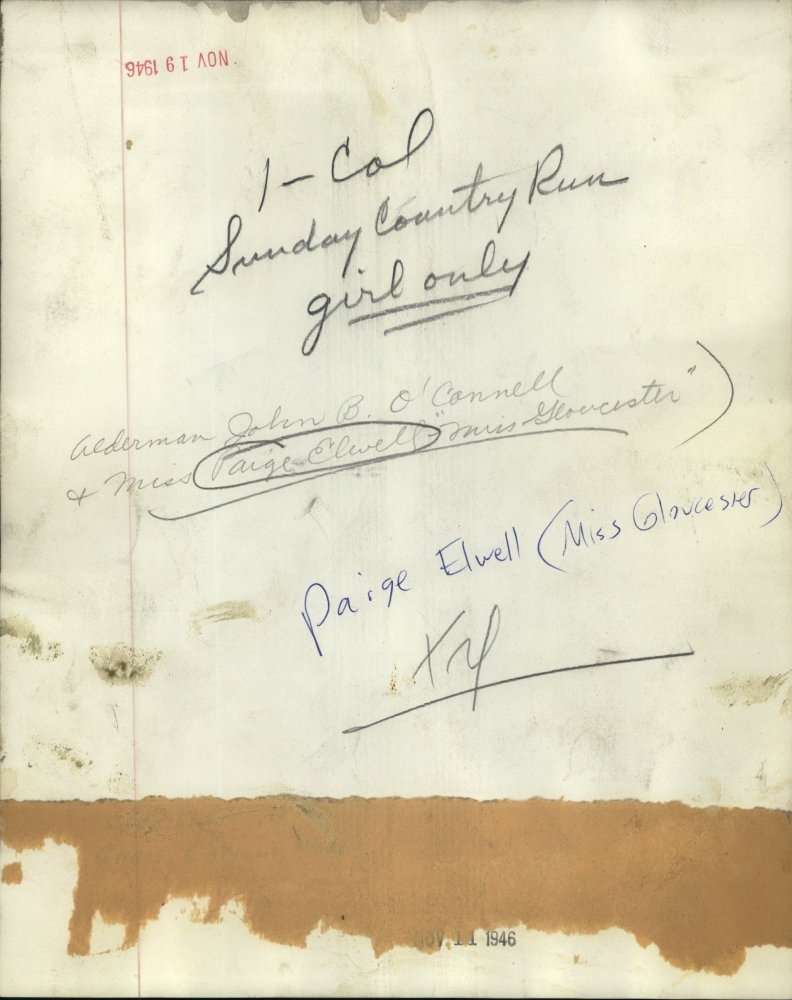 NOV 19 1946
1 - Col
Sunday Country Run
girl only
Alderman John B. O'Connell
& Miss Paige Elwell - "Miss Gloucester"
Paige Elwell (Miss Gloucester)
NOV 11 1946